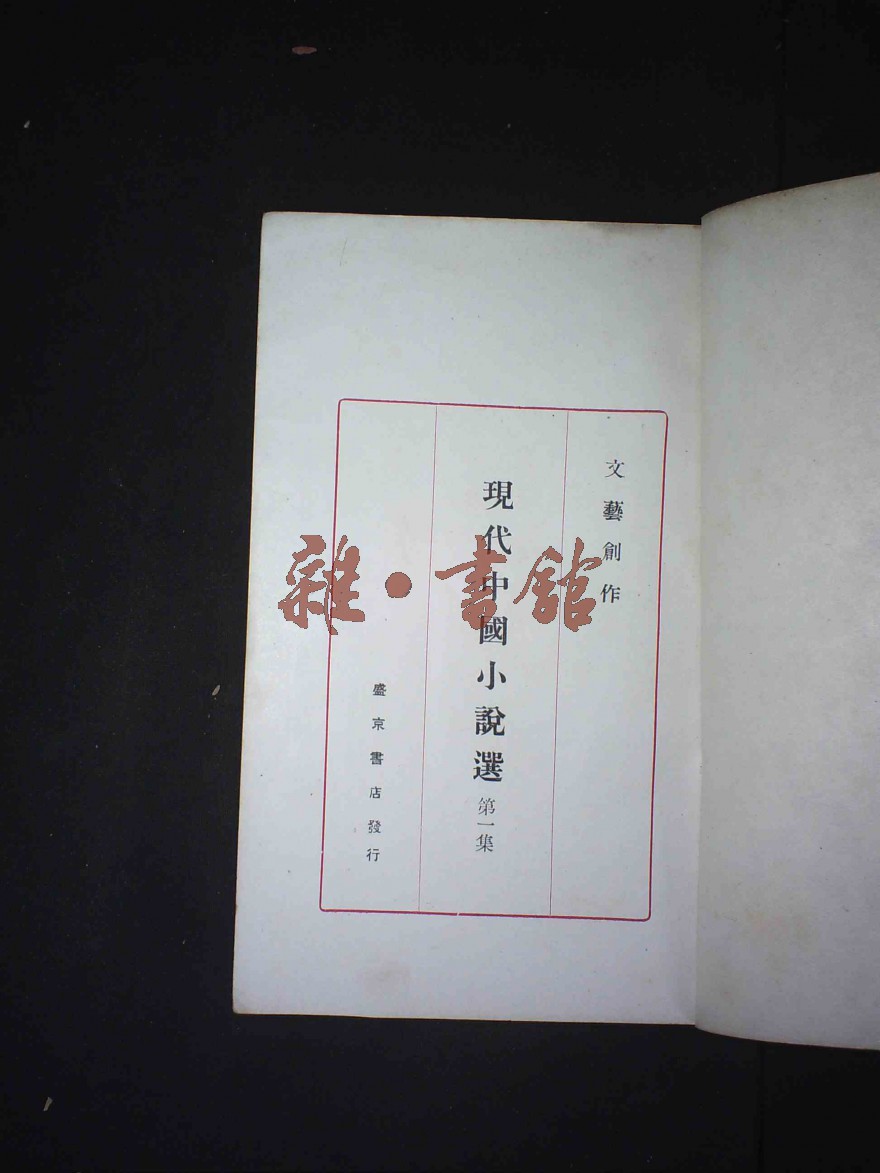 文藝創作
現代中國小說選 第一集
盛京書店發行
雜·書館